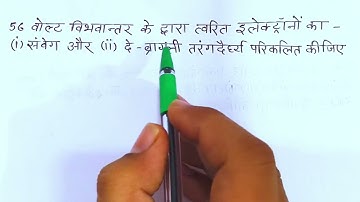 56 वोल्ट विभवान्तर के द्वारा त्वरित इलेक्ट्रॉनों का -
(i) संवेग और (ii) दे-ब्रागली तरंगदैर्ध्य परिकलित कीजिए